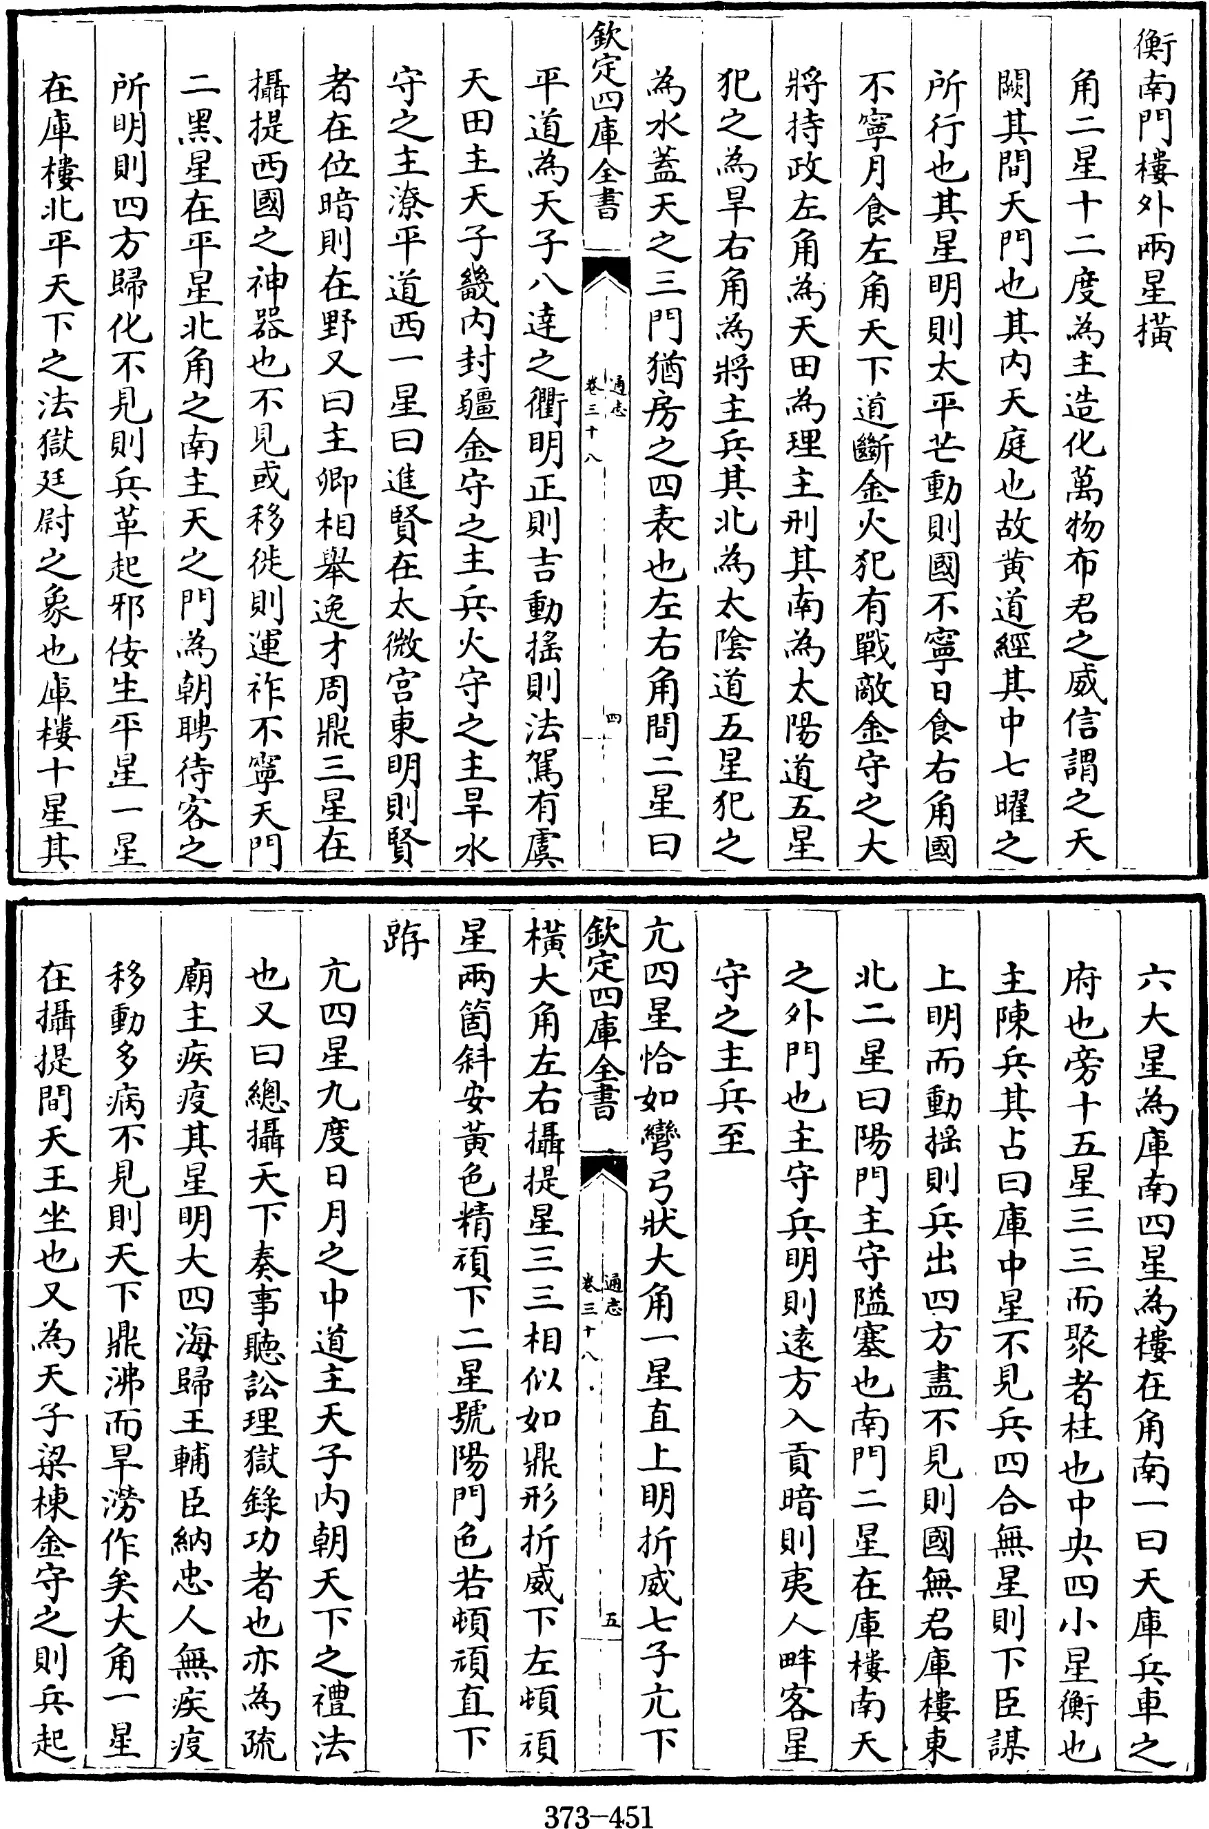 衡南門樓外兩星橫
角二星十二度為主造化萬物布君之威信謂之天
闕其間天門也其内天庭也故黄道經其中七曜之
所行也其星明則太平芒動則國不寧日食右角國
不寧月食左角天下道斷金火犯有戰敵金守之大
將持政左角為天田為理主刑其南為太陽道五星
犯之為旱右角為將主兵其北為太陰道五星犯之
為水蓋天之三門猶房之四表也左右角間二星曰
欽定四庫全書
通志
卷三十八
四
平道為天子八逹之衢明正則吉動搖則法駕有虞
天田主天子畿内封疆金守之主兵火守之主旱水
守之主潦平道西一星曰進賢在太微宫東明則賢
者在位暗則在野又曰主卿相舉逸才周鼎三星在
攝提西國之神器也不見或移徙則運祚不寧天門
二黑星在平星北角之南主天之門為朝聘待客之
所明則四方歸化不見則兵革起邪佞生平星一星
在庫樓北平天下之法獄廷尉之象也庫樓十星其
六大星為庫南四星為樓在角南一曰天庫兵車之
府也旁十五星三三而聚者柱也中央四小星衡也
主陳兵其占曰庫中星不見兵四合無星則下臣謀
上明而動揺則兵出四方盡不見則國無君庫樓東
北二星曰陽門主守隘塞也南門二星在庫樓南天
之外門也主守兵明則遠方入貢暗則夷人畔客星
守之主兵至
亢四星恰如彎弓狀大角一星直上明折威七子亢下
欽定四庫全書
通志
卷三十八
五
橫大角左右攝提星三三相似如鼎形折威下左頓頑
星兩箇斜安黃色精頑下二星號陽門色若頓頑直下
蹲
亢四星九度日月之中道主天子内朝天下之禮法
也又曰總攝天下奏事聽訟理獄錄功者也亦為疏
廟主疾疫其星明大四海歸王輔臣納忠人無疾疫
移動多病不見則天下鼎沸而旱澇作矣大角一星
在攝提間天王坐也又為天子梁棟金守之則兵起
373-451